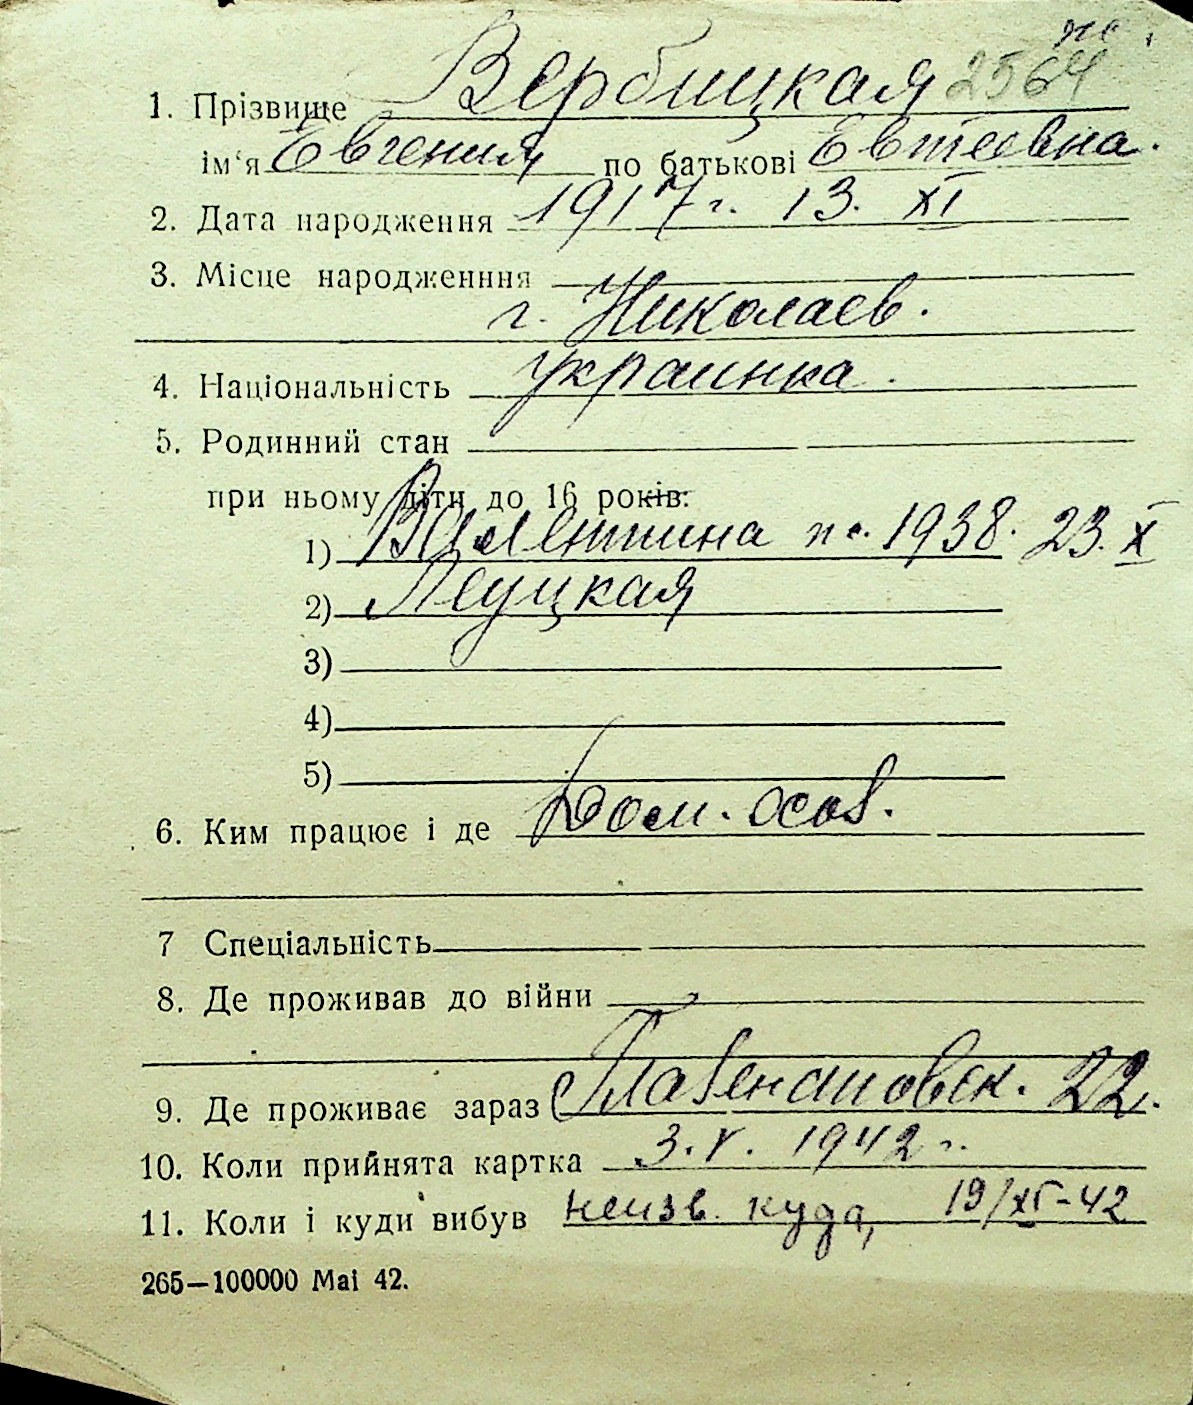 1. Прізвище Вербицкая 2564
ім'я Евгения по батькові Евтеевна.
2. Дата народження 1917 г. 13. XI
3. Місце народженння
г. Николаев.
4. Національність украинка.
5. Родинний стан
при ньому діти до 16 років:
1) Валентина 1938. 23. X
2)
3)
4)
5)
6. Ким працює і де Дом. хоз.
7 Спеціальність
8. Де проживав до війни
9. Де проживає зараз 22.
10. Коли прийнята картка 3. V. 1942 г.
11. Коли і куди вибув неизв. куда, 19/XI-42
265—100000 Mai 42.